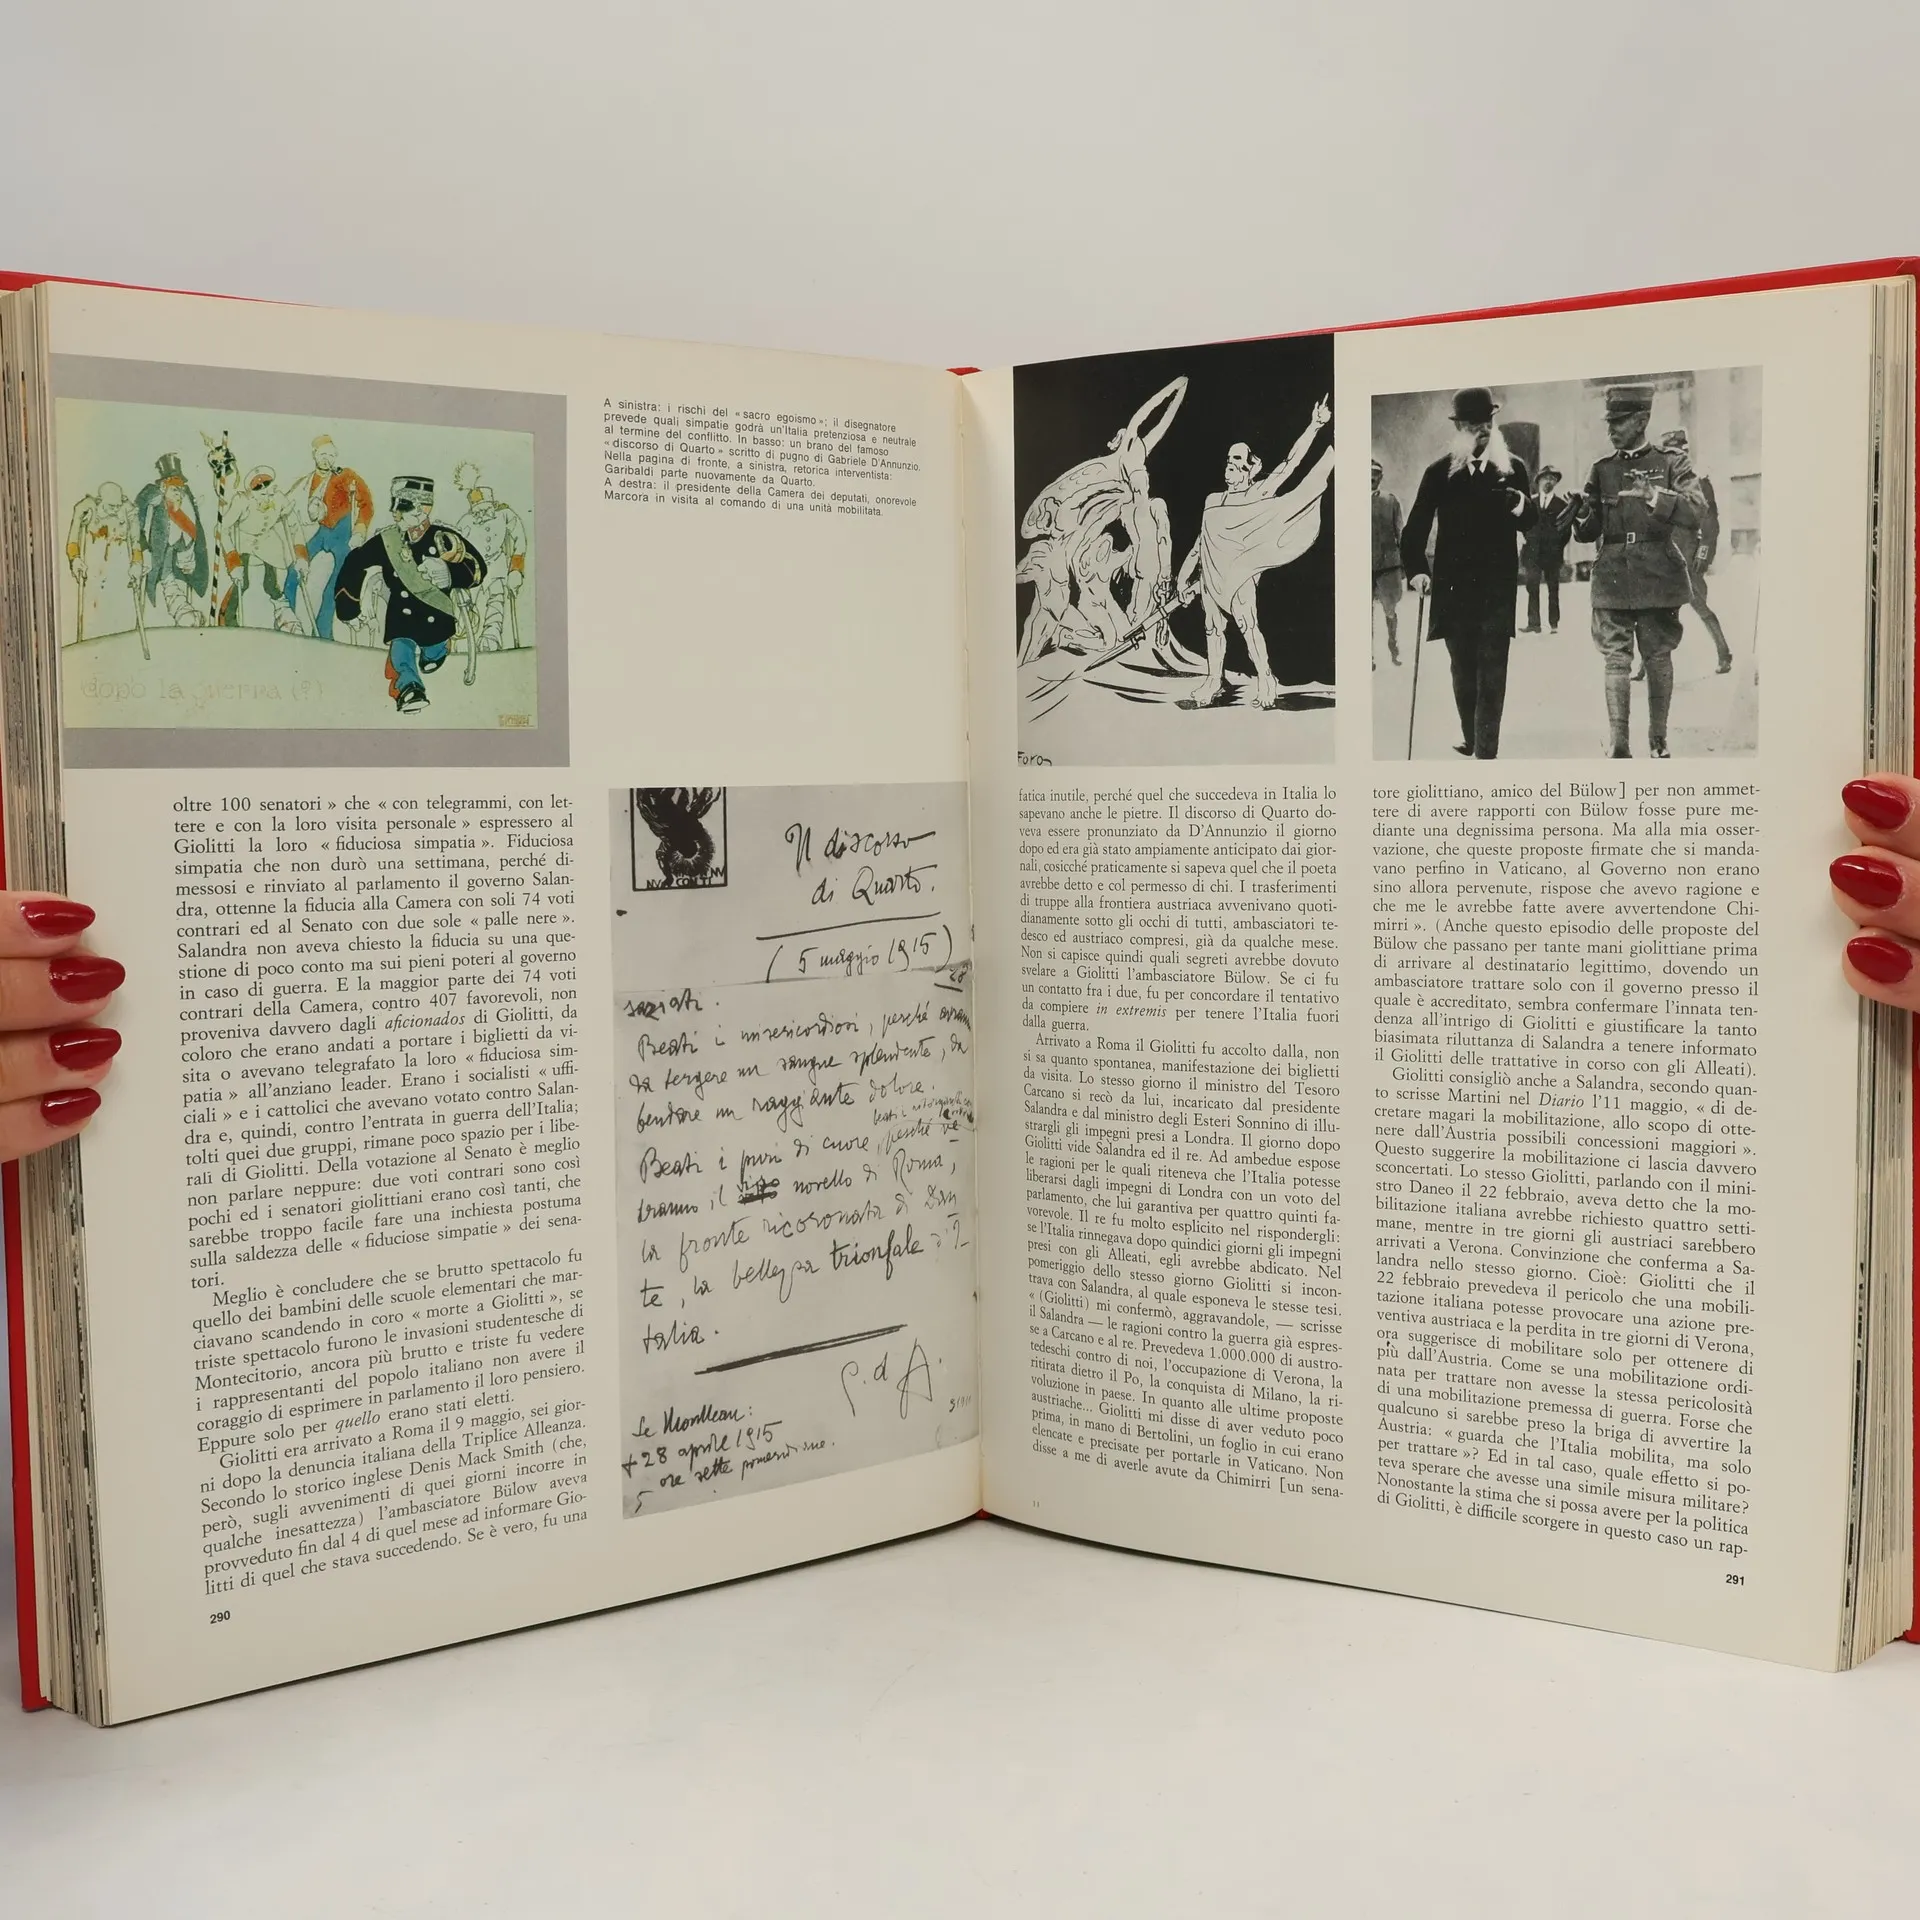 dopo la guerra (?)
A sinistra: i rischi del « sacro egoismo »; il disegnatore
prevede quali simpatie godrà un'Italia pretenziosa e neutrale
al termine del conflitto. In basso: un brano del famoso
« discorso di Quarto » scritto di pugno di Gabriele D'Annunzio.
Nella pagina di fronte, a sinistra, retorica interventista:
Garibaldi parte nuovamente da Quarto.
A destra: il presidente della Camera dei deputati, onorevole
Marcora in visita al comando di una unità mobilitata.
oltre 100 senatori » che « con telegrammi, con let-
tere e con la loro visita personale » espressero al
Giolitti la loro « fiduciosa simpatia ». Fiduciosa
simpatia che non durò una settimana, perché di-
messosi e rinviato al parlamento il governo Salan-
dra, ottenne la fiducia alla Camera con soli 74 voti
contrari ed al Senato con due sole « palle nere ».
Salandra non aveva chiesto la fiducia su una que-
stione di poco conto ma sui pieni poteri al governo
in caso di guerra. E la maggior parte dei 74 voti
contrari della Camera, contro 407 favorevoli, non
proveniva davvero dagli aficionados di Giolitti, da
coloro che erano andati a portare i biglietti da vi-
sita o avevano telegrafato la loro « fiduciosa sim-
patia » all'anziano leader. Erano i socialisti « uffi-
ciali » e i cattolici che avevano votato contro Salan-
dra e, quindi, contro l'entrata in guerra dell'Italia;
tolti quei due gruppi, rimane poco spazio per i libe-
rali di Giolitti. Della votazione al Senato è meglio
non parlare neppure: due voti contrari sono così
pochi ed i senatori giolittiani erano così tanti, che
sarebbe troppo facile fare una inchiesta postuma
sulla saldezza delle « fiduciose simpatie » dei sena-
tori.
Meglio è concludere che se brutto spettacolo fu
quello dei bambini delle scuole elementari che mar-
ciavano scandendo in coro « morte a Giolitti », se
triste spettacolo furono le invasioni studentesche di
Montecitorio, ancora più brutto e triste fu vedere
i rappresentanti del popolo italiano non avere il
coraggio di esprimere in parlamento il loro pensiero.
Eppure solo per quello erano stati eletti.
Giolitti era arrivato a Roma il 9 maggio, sei gior-
ni dopo la denuncia italiana della Triplice Alleanza.
Secondo lo storico inglese Denis Mack Smith (che,
però, sugli avvenimenti di quei giorni incorre in
qualche inesattezza) l'ambasciatore Bülow aveva
provveduto fin dal 4 di quel mese ad informare Gio-
litti di quel che stava succedendo. Se è vero, fu una
290
Il discorso
di Quarto.
( 5 maggio 1915 )
28
saziati.
Beati i misericordiosi, perché avranno
da tergere un sangue splendente, da
bendare un raggiante dolore.
Beati i puri di cuore, perché ve-
dranno il viso novello di Roma,
la fronte ricoronata di Dan
te, la bellezza trionfale d'I-
talia.
G. d A.
+ 28 aprile 1915
ore sette pomeridiane.
Foron
fatica inutile, perché quel che succedeva in Italia lo
sapevano anche le pietre. Il discorso di Quarto do-
veva essere pronunziato da D'Annunzio il giorno
dopo ed era già stato ampiamente anticipato dai gior-
nali, cosicché praticamente si sapeva quel che il poeta
avrebbe detto e col permesso di chi. I trasferimenti
di truppe alla frontiera austriaca avvenivano quoti-
dianamente sotto gli occhi di tutti, ambasciatori te-
desco ed austriaco compresi, già da qualche mese.
Non si capisce quindi quali segreti avrebbe dovuto
svelare a Giolitti l'ambasciatore Bülow. Se ci fu
un contatto fra i due, fu per concordare il tentativo
da compiere in extremis per tenere l'Italia fuori
dalla guerra.
Arrivato a Roma il Giolitti fu accolto dalla, non
si sa quanto spontanea, manifestazione dei biglietti
da visita. Lo stesso giorno il ministro del Tesoro
Carcano si recò da lui, incaricato dal presidente
Salandra e dal ministro degli Esteri Sonnino di illu-
strargli gli impegni presi a Londra. Il giorno dopo
Giolitti vide Salandra ed il re. Ad ambedue espose
le ragioni per le quali riteneva che l'Italia potesse
liberarsi dagli impegni di Londra con un voto del
parlamento, che lui garantiva per quattro quinti fa-
vorevole. Il re fu molto esplicito nel rispondergli:
se l'Italia rinnegava dopo quindici giorni gli impegni
presi con gli Alleati, egli avrebbe abdicato. Nel
pomeriggio dello stesso giorno Giolitti si incon-
trava con Salandra, al quale esponeva le stesse tesi.
« (Giolitti) mi confermò, aggravandole, — scrisse
il Salandra — le ragioni contro la guerra già espres-
se a Carcano e al re. Prevedeva 1.000.000 di austro-
tedeschi contro di noi, l'occupazione di Verona, la
ritirata dietro il Po, la conquista di Milano, la ri-
voluzione in paese. In quanto alle ultime proposte
austriache... Giolitti mi disse di aver veduto poco
prima, in mano di Bertolini, un foglio in cui erano
elencate e precisate per portarle in Vaticano. Non
disse a me di averle avute da Chimirri [un sena-
11
tore giolittiano, amico del Bülow] per non ammet-
tere di avere rapporti con Bülow fosse pure me-
diante una degnissima persona. Ma alla mia osser-
vazione, che queste proposte firmate che si manda-
vano perfino in Vaticano, al Governo non erano
sino allora pervenute, rispose che avevo ragione e
che me le avrebbe fatte avere avvertendone Chi-
mirri ». (Anche questo episodio delle proposte del
Bülow che passano per tante mani giolittiane prima
di arrivare al destinatario legittimo, dovendo un
ambasciatore trattare solo con il governo presso il
quale è accreditato, sembra confermare l'innata ten-
denza all'intrigo di Giolitti e giustificare la tanto
biasimata riluttanza di Salandra a tenere informato
il Giolitti delle trattative in corso con gli Alleati).
Giolitti consigliò anche a Salandra, secondo quan-
to scrisse Martini nel Diario l'11 maggio, « di de-
cretare magari la mobilitazione, allo scopo di otte-
nere dall'Austria possibili concessioni maggiori ».
Questo suggerire la mobilitazione ci lascia davvero
sconcertati. Lo stesso Giolitti, parlando con il mini-
stro Daneo il 22 febbraio, aveva detto che la mo-
bilitazione italiana avrebbe richiesto quattro setti-
mane, mentre in tre giorni gli austriaci sarebbero
arrivati a Verona. Convinzione che conferma a Sa-
landra nello stesso giorno. Cioè: Giolitti che il
22 febbraio prevedeva il pericolo che una mobili-
tazione italiana potesse provocare una azione pre-
ventiva austriaca e la perdita in tre giorni di Verona,
ora suggerisce di mobilitare solo per ottenere di
più dall'Austria. Come se una mobilitazione ordi-
nata per trattare non avesse la stessa pericolosità
di una mobilitazione premessa di guerra. Forse che
qualcuno si sarebbe preso la briga di avvertire la
Austria: « guarda che l'Italia mobilita, ma solo
per trattare »? Ed in tal caso, quale effetto si po-
teva sperare che avesse una simile misura militare?
Nonostante la stima che si possa avere per la politica
di Giolitti, è difficile scorgere in questo caso un rap-
291